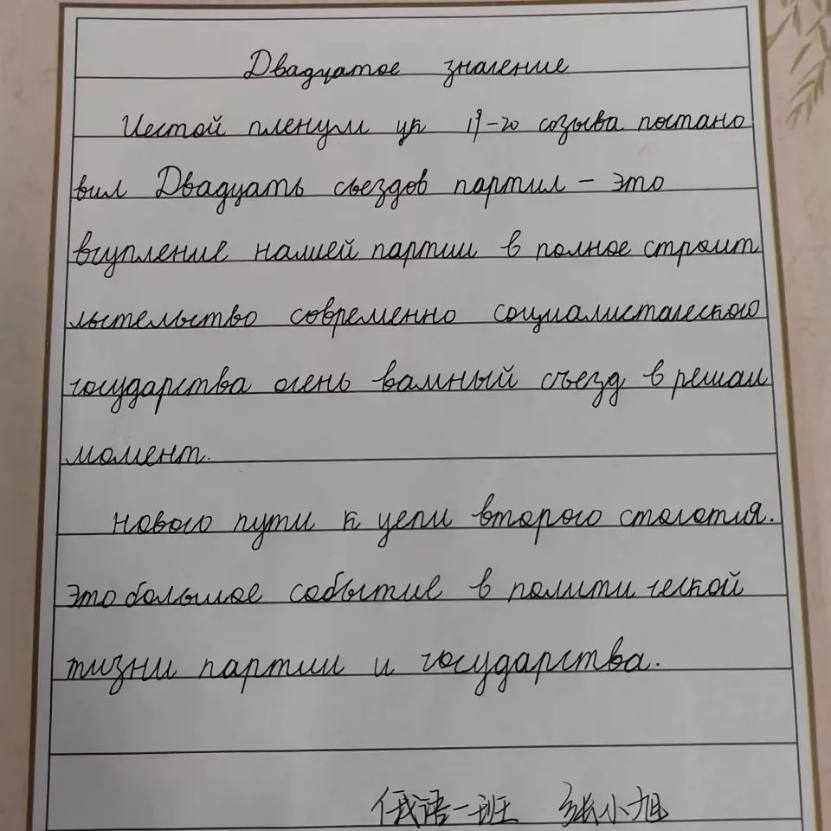 Двадцатое значение
Шестой пленум цк 19-20 созыва постано
вил Двадцать съездов партии - это
вступление нашей партии в полное строит
льстельство современно социалистического
государства очень важный съезд в решаи
момент.
нового пути к цели второго столотия.
это большое событие в политической
жизни партии и государства.
俄语一班 张小旭